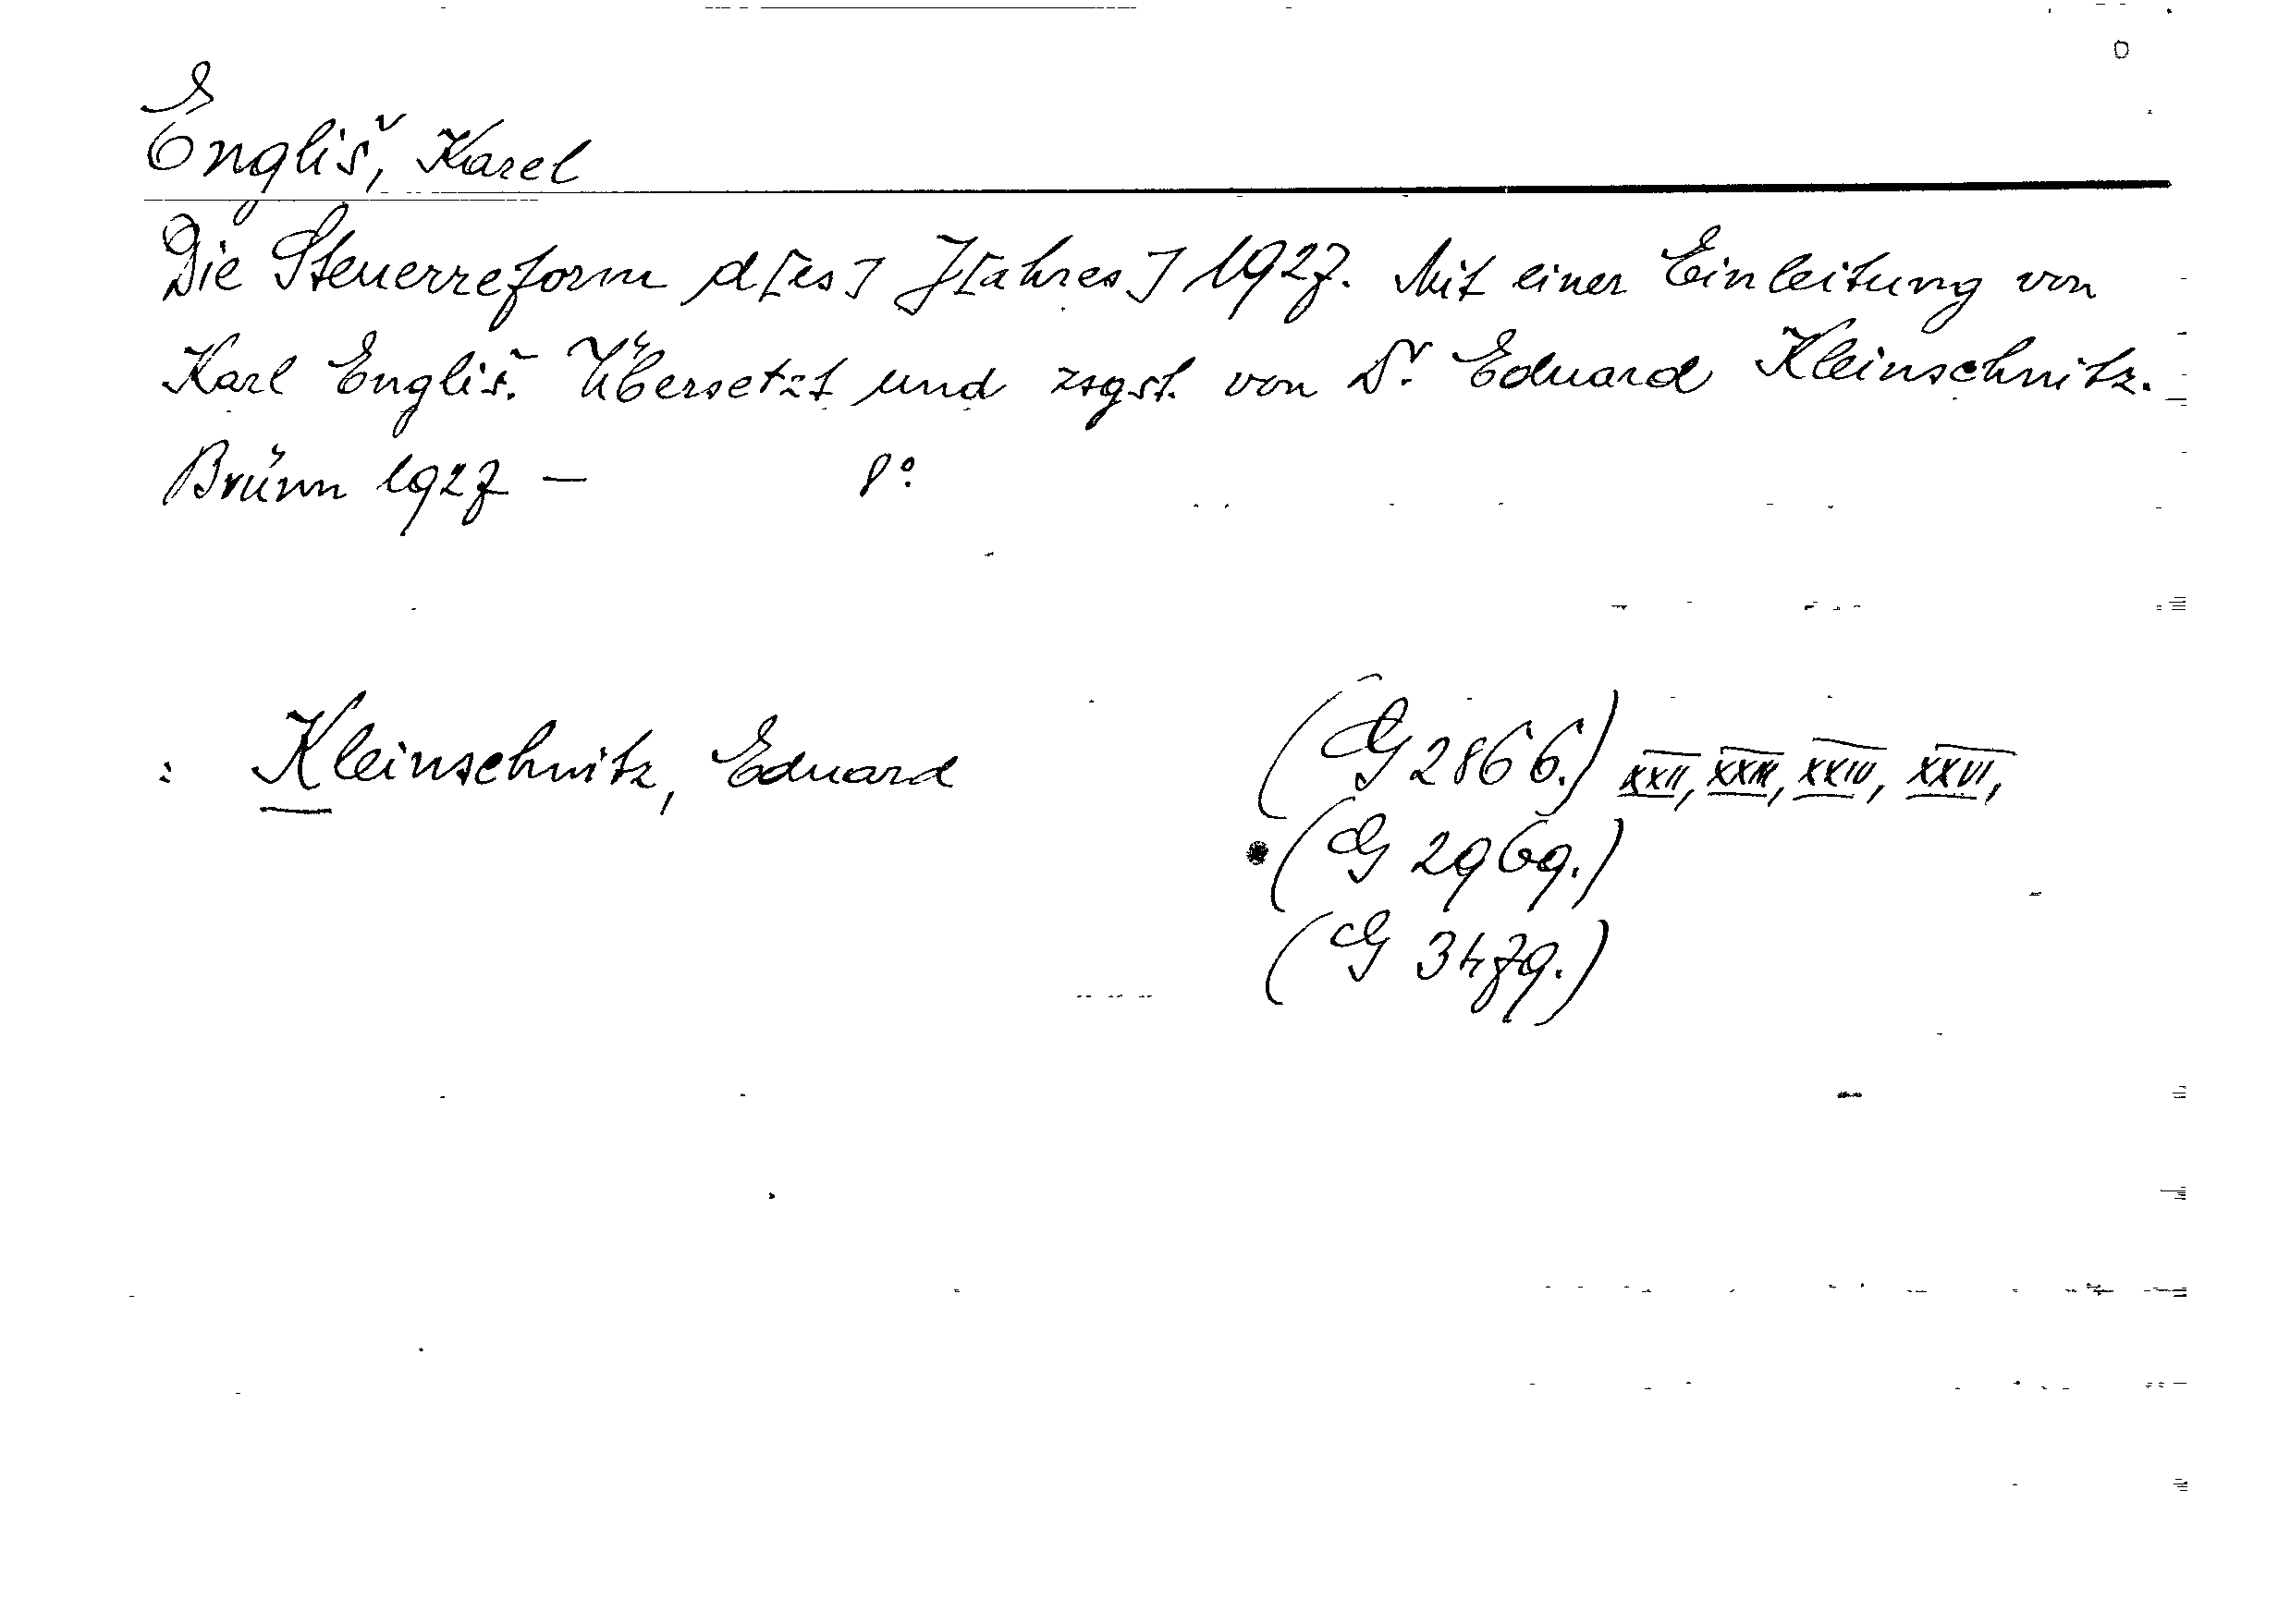 Engliš, Karel
Die Steuerreform d[es] J[ahres] 1927. Mit einer Einleitung von
Karl Engliš. Übersetzt und zsgst. von Dr. Eduard Kleinschnitz.
Brünn 1927 — 8°.
: Kleinschnitz, Eduard (G 2866.) XXII, XXIII, XXIV, XXVI,
(G 2969.)
(G 3479.)